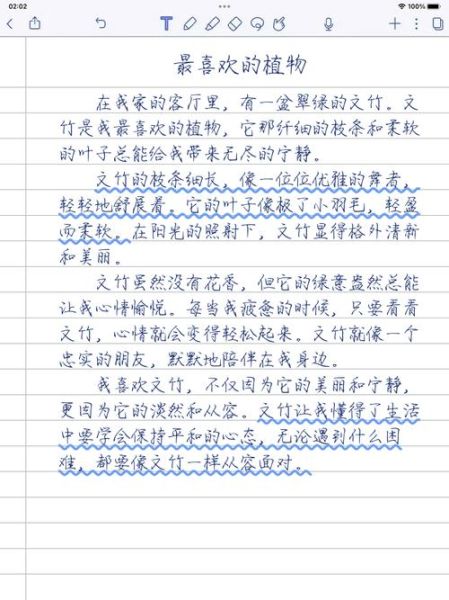 02:02
100%
最喜欢的植物
在我家的客厅里，有一盆翠绿的文竹。文
竹是我最喜欢的植物，它那纤细的枝条和柔软
的叶子总能给我带来无尽的宁静。
文竹的枝条细长，像一位位优雅的舞者，
轻轻地舒展着。它的叶子像极了小羽毛，轻盈
而柔软。在阳光的照射下，文竹显得格外清新
和美丽。
文竹虽然没有花香，但它的绿意盎然总能
让我心情愉悦。每当我疲惫的时候，只要看看
文竹，心情就会变得轻松起来。文竹就像一个
忠实的朋友，默默地陪伴在我身边。
我喜欢文竹，不仅因为它的美丽和宁静，
更因为它的淡然和从容。文竹让我懂得了生活
中要学会保持平和的心态，无论遇到什么困
难，都要像文竹一样从容面对。